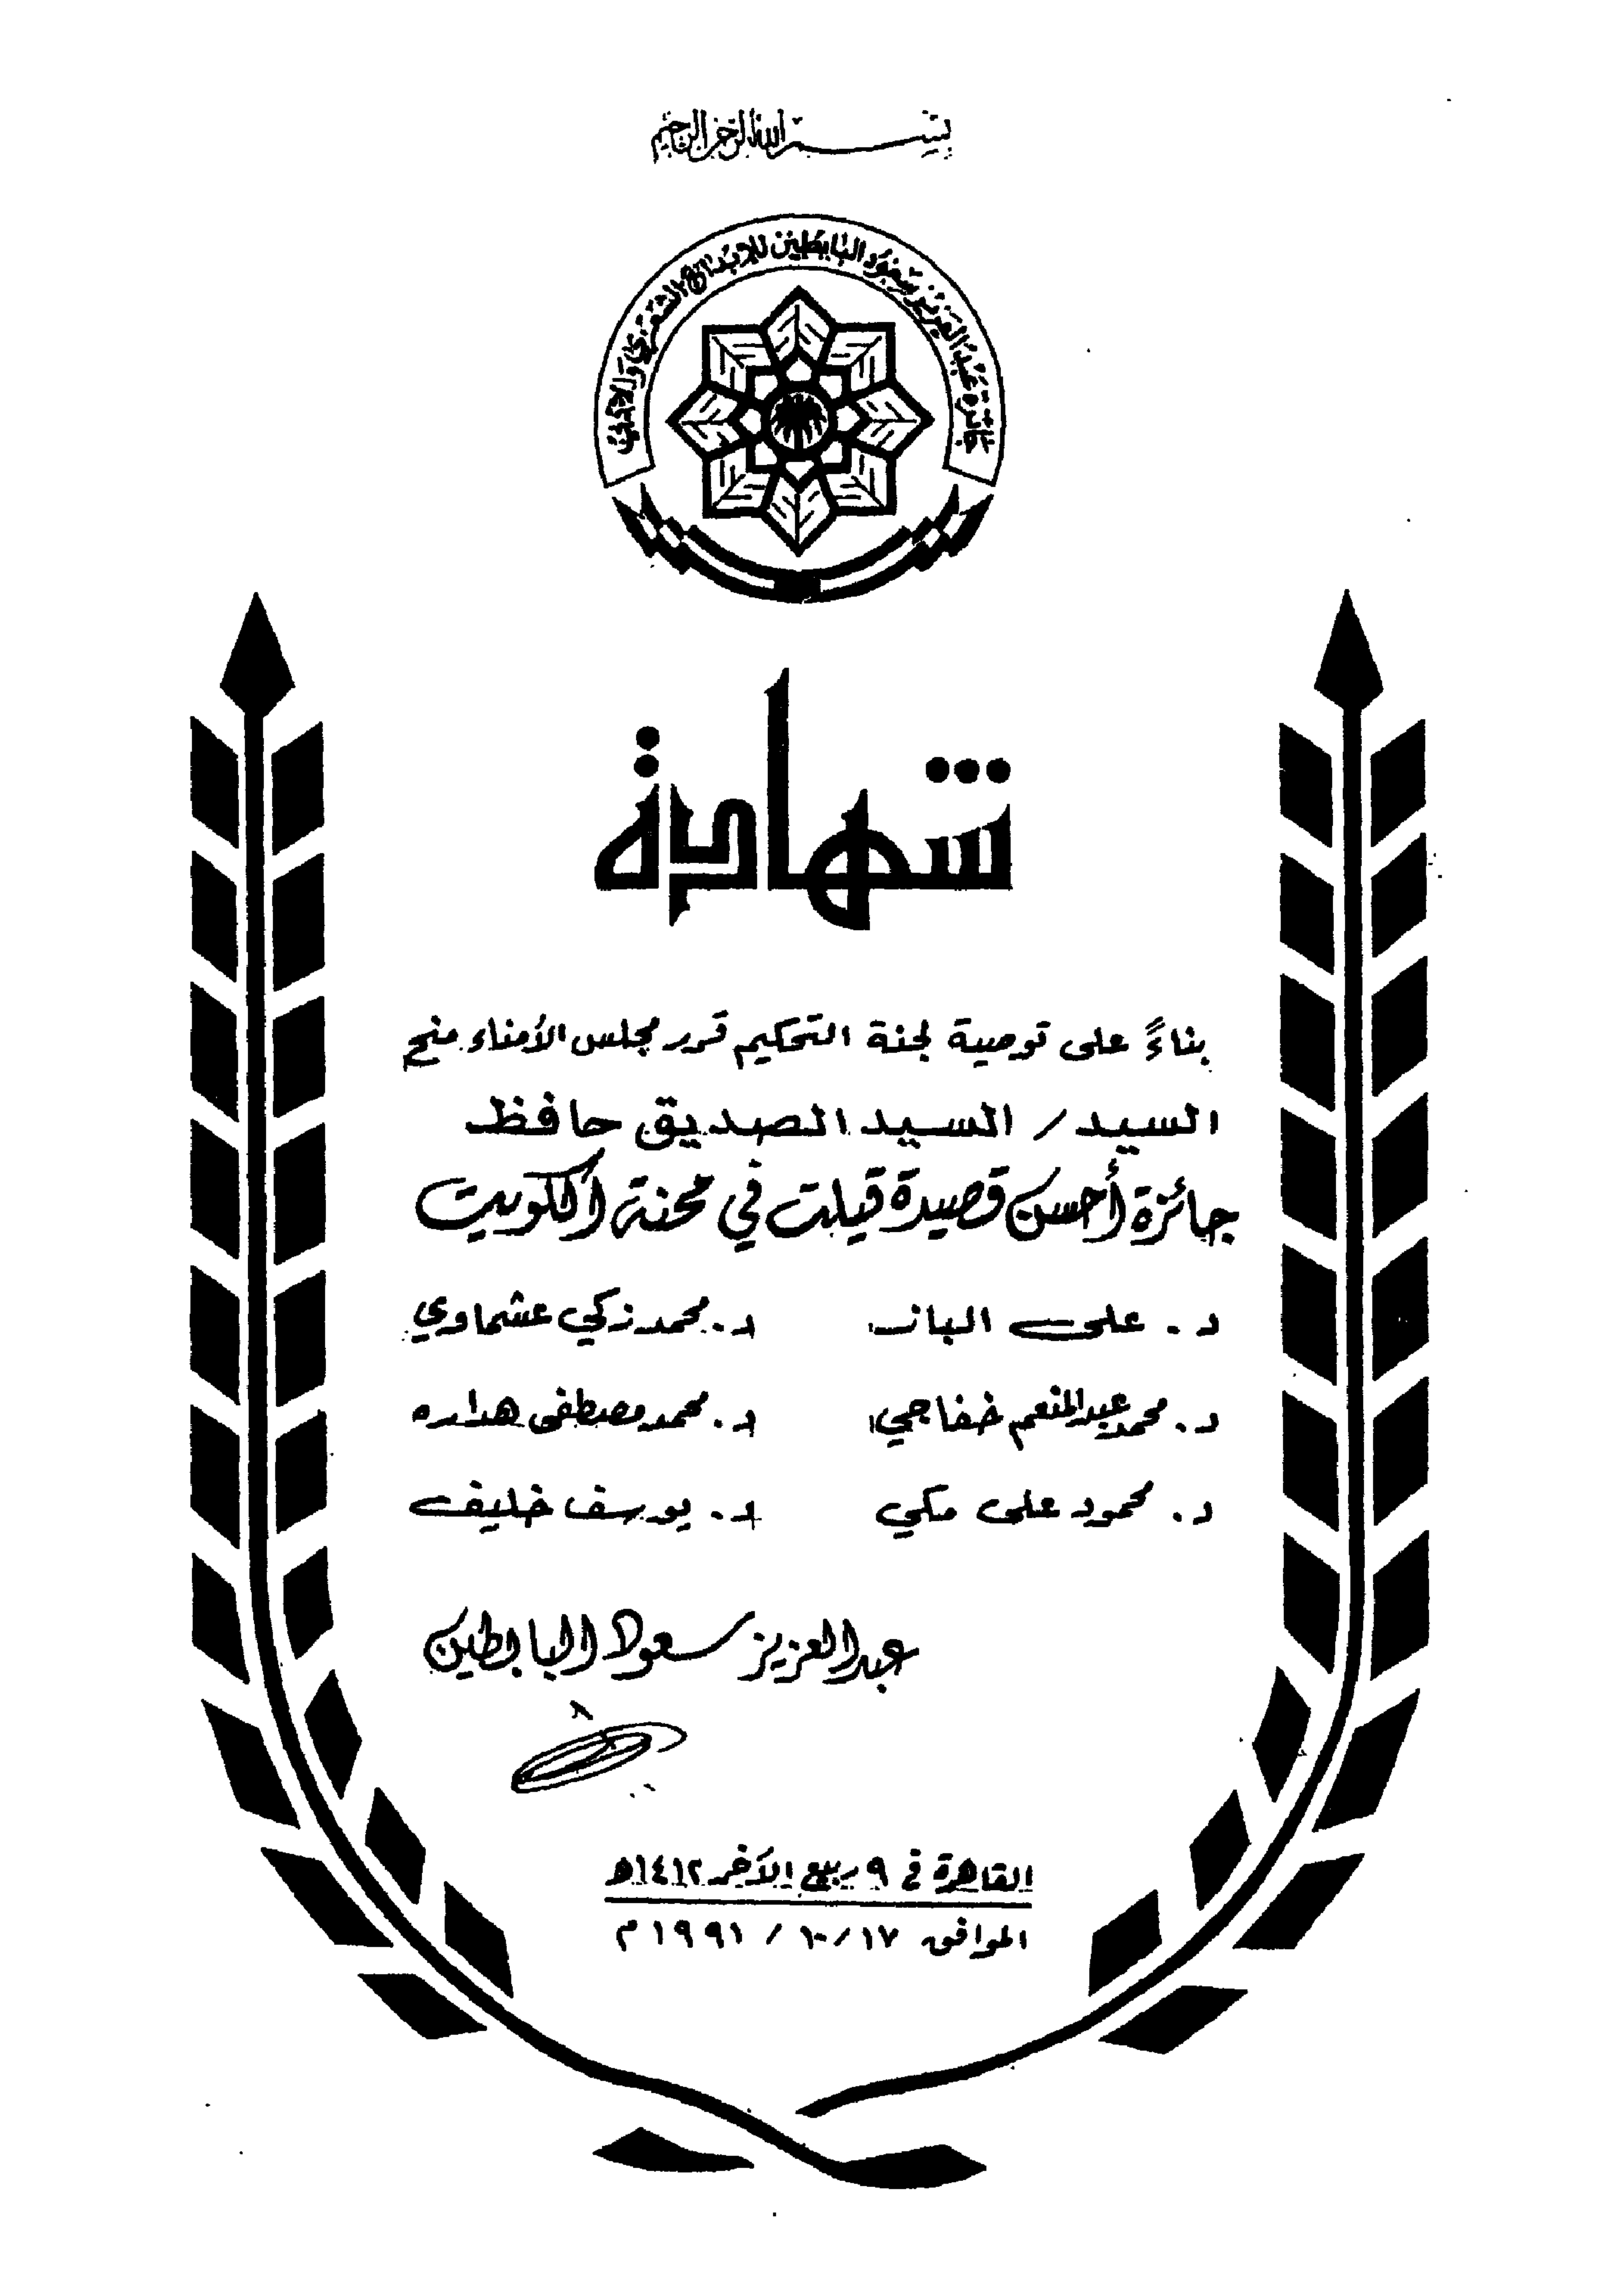 بسم الله الرحمن الرحيم
جائزة عبد العزيز سعود البابطين للإبداع الشعري
شهادة
بناءً على توصية لجنة التحكيم قرر مجلس الأمناء منح
السيد / السيد الصديق حافظ
جائزة أحسن قصيدة قيلت في محنة الكويت
د. على الباز د. محمد زكي عشماوي
د. محمد عبدالمنعم خفاجي د. محمد مصطفى هداره
د. محمود على مكي د. يوسف خليف
عبدالعزيز سعود البابطين
القاهرة في ٩ ربيع الآخر ١٤١٢هـ
الموافق ١٧/١٠/١٩٩١م